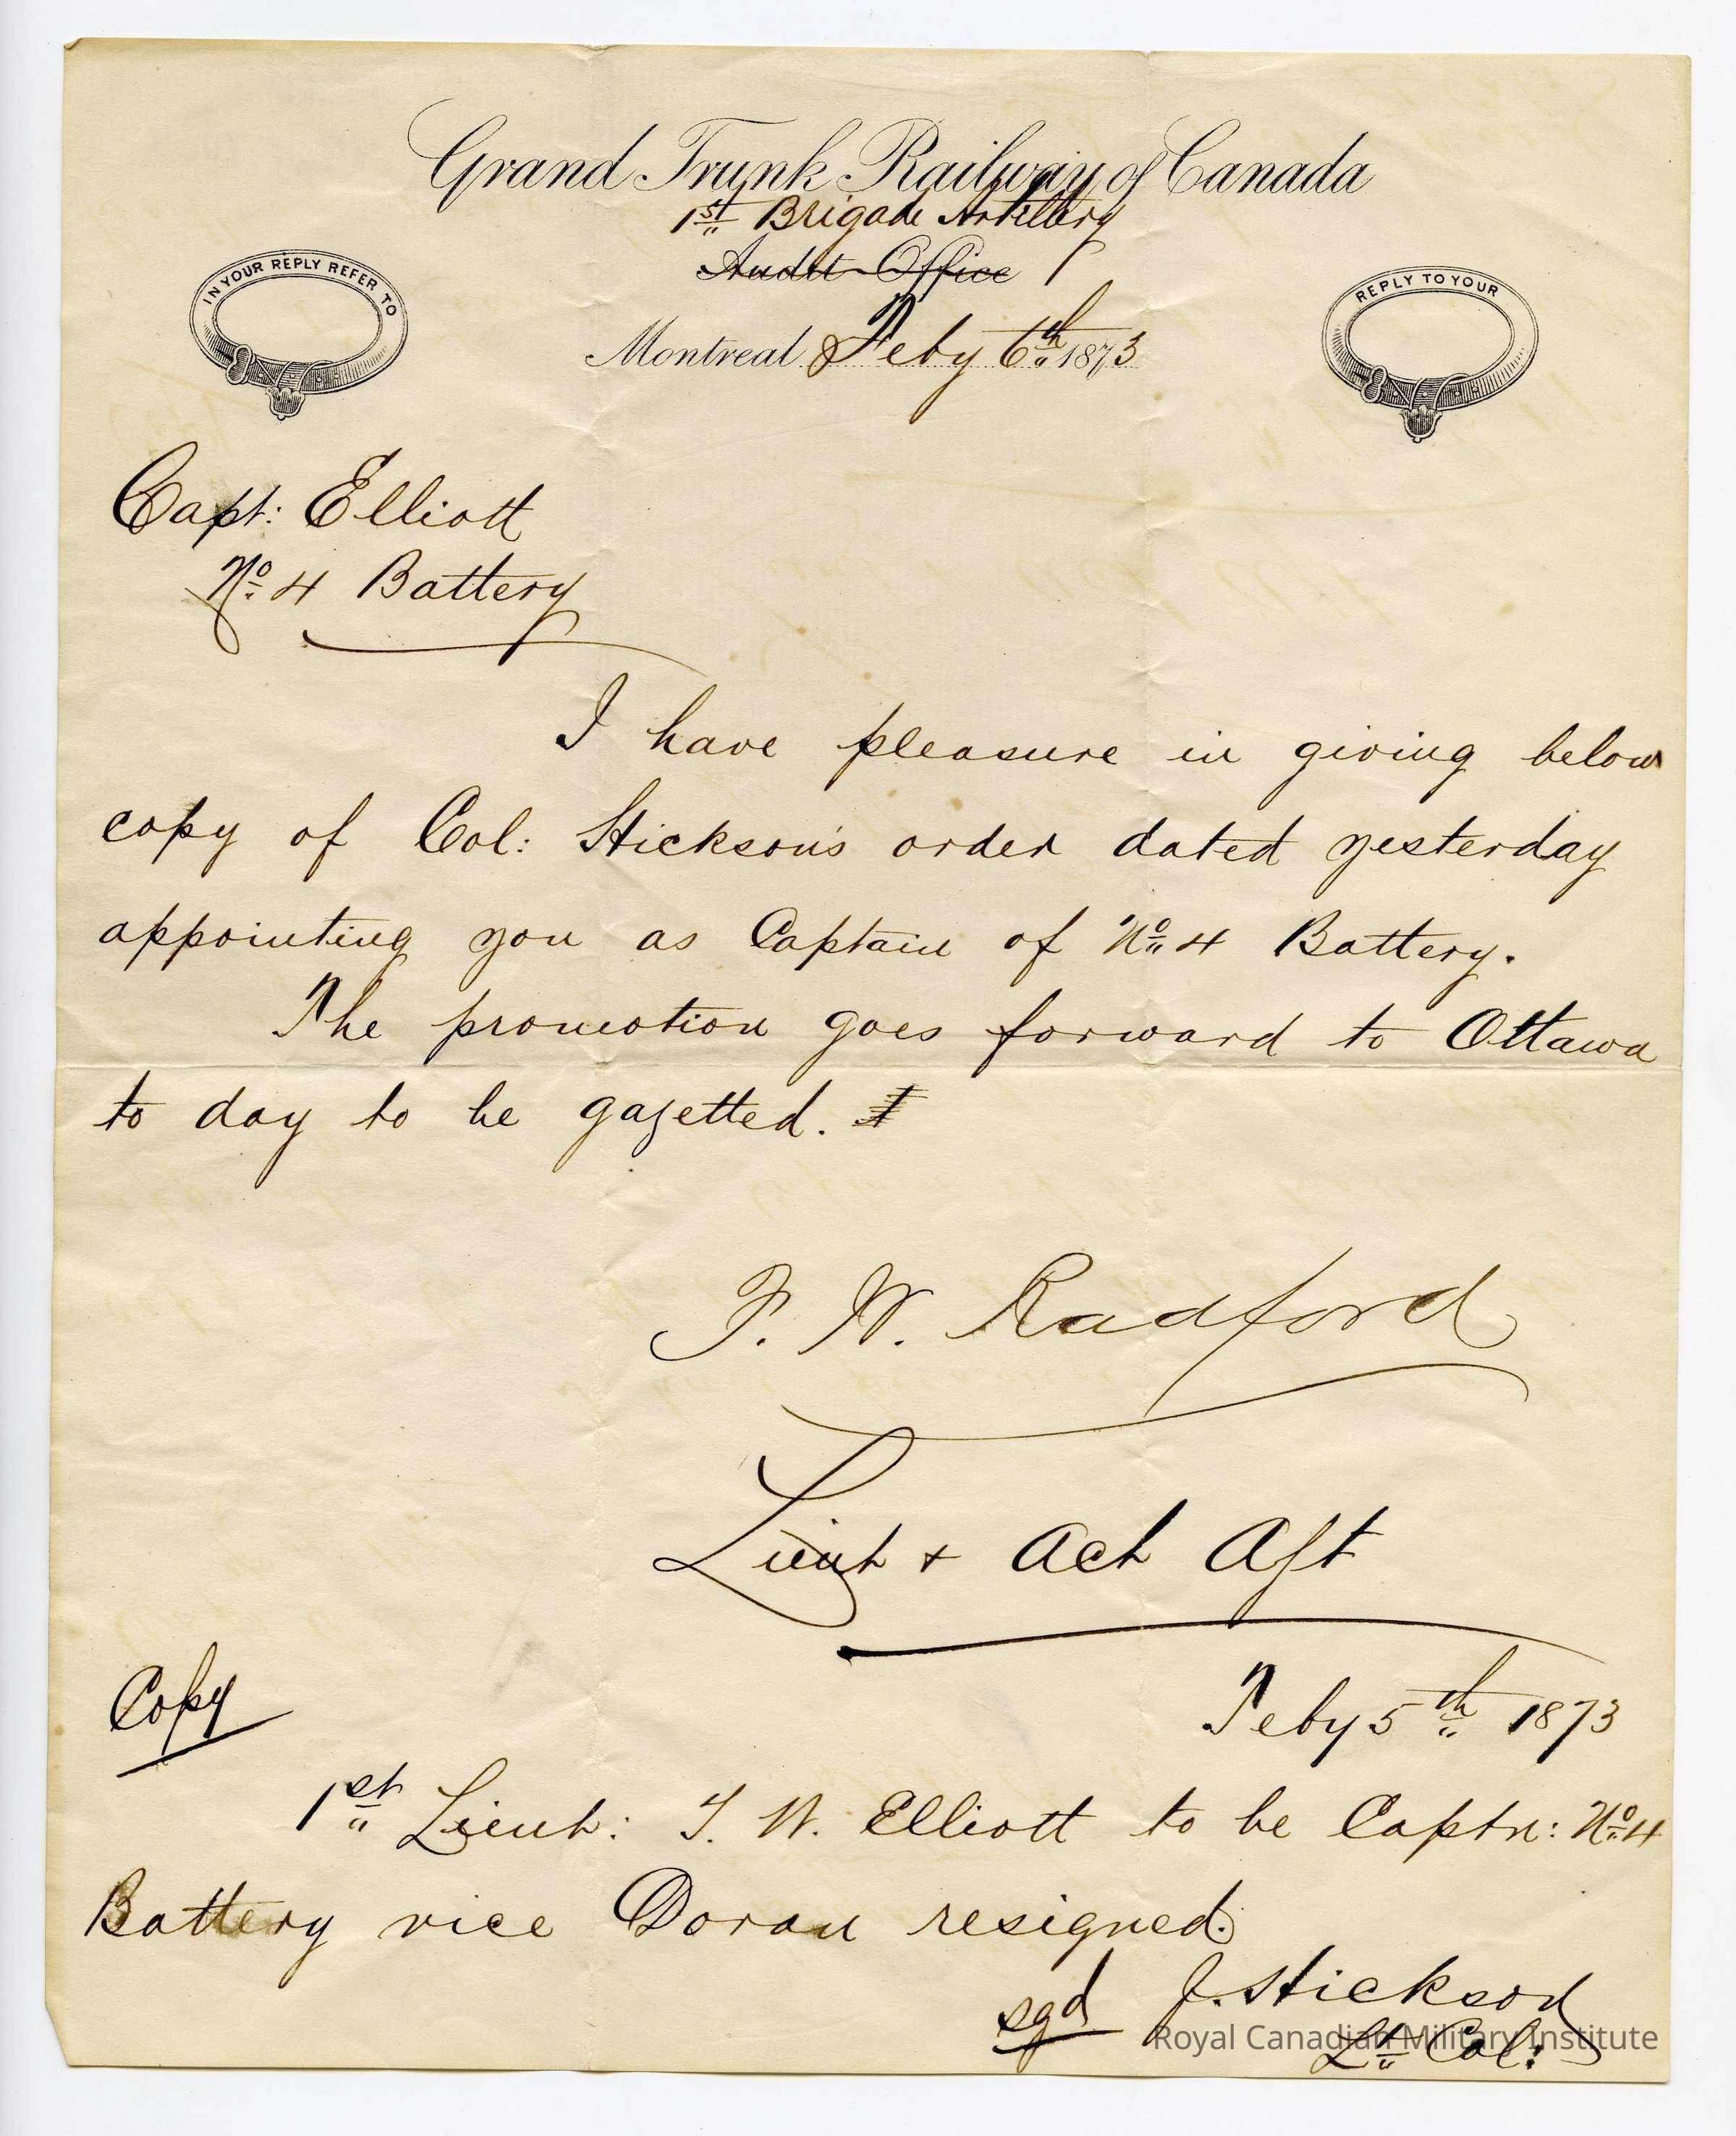 Grand Trunk Railway of Canada
1st Brigade Artillery
Audit Office
IN YOUR REPLY REFER TO
REPLY TO YOUR
Montreal Feby 6th 1873
Capt: Elliott
No 4 Battery
I have pleasure in giving below
copy of Col: Hickson's order dated yesterday
appointing you as Captain of No 4 Battery.
The promotion goes forward to Ottawa
to day to be gazetted.
F. W. Radford
Lieut + Act Ajt
Copy
Feby 5th 1873
1st Lieut: T. W. Elliott to be Captn: No 4
Battery vice Doran resigned.
sgd J. Hickson
Lt Col:
Royal Canadian Military Institute